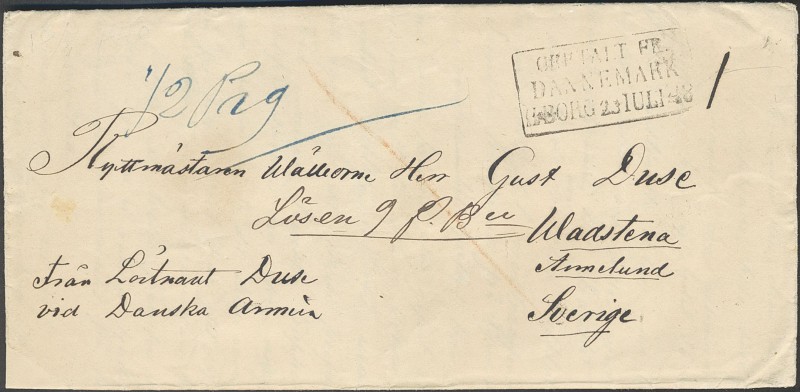 1/2 Prg
OBETALT FR.
DANNEMARK
H-BORG 23 JULI 48
Ryttmästaren Wälborne Herr Gust Duse
Lösen 9 s. Bco
Wadstena
Annelund
Sverige
från Löitnant Duse
vid Danska Armèn